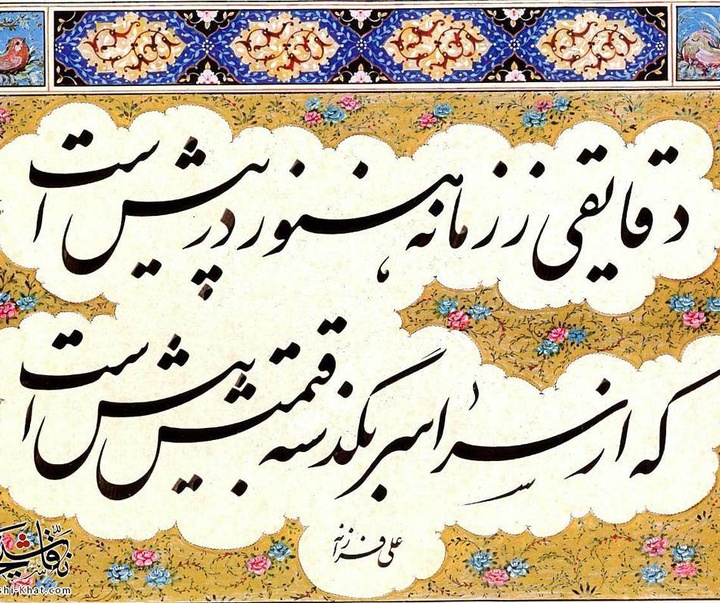 دقایقی ز زمانه هنوز در پیش است
که از سراسر بگذشته قیمتش بیش است
علی فرزانه
shi-khat.com